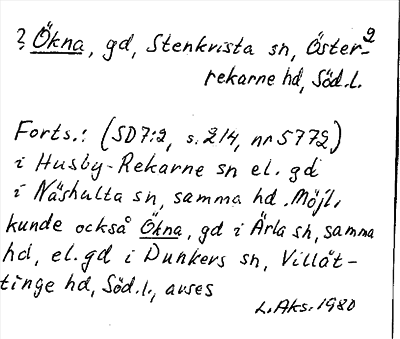 ? Ökna, gd, Stenkvista sn, Öster- 2
rekarne hd, Söd.l.
Forts.: (SD7:2, s. 214, nr 5772)
i Husby-Rekarne sn el. gd
i Näshulta sn, samma hd. Möjl.
kunde också Ökna, gd i Ärla sn, samma
hd, el. gd i Dunkers sn, Villåt-
tinge hd, Söd.l., avses
L. Aks. 1980